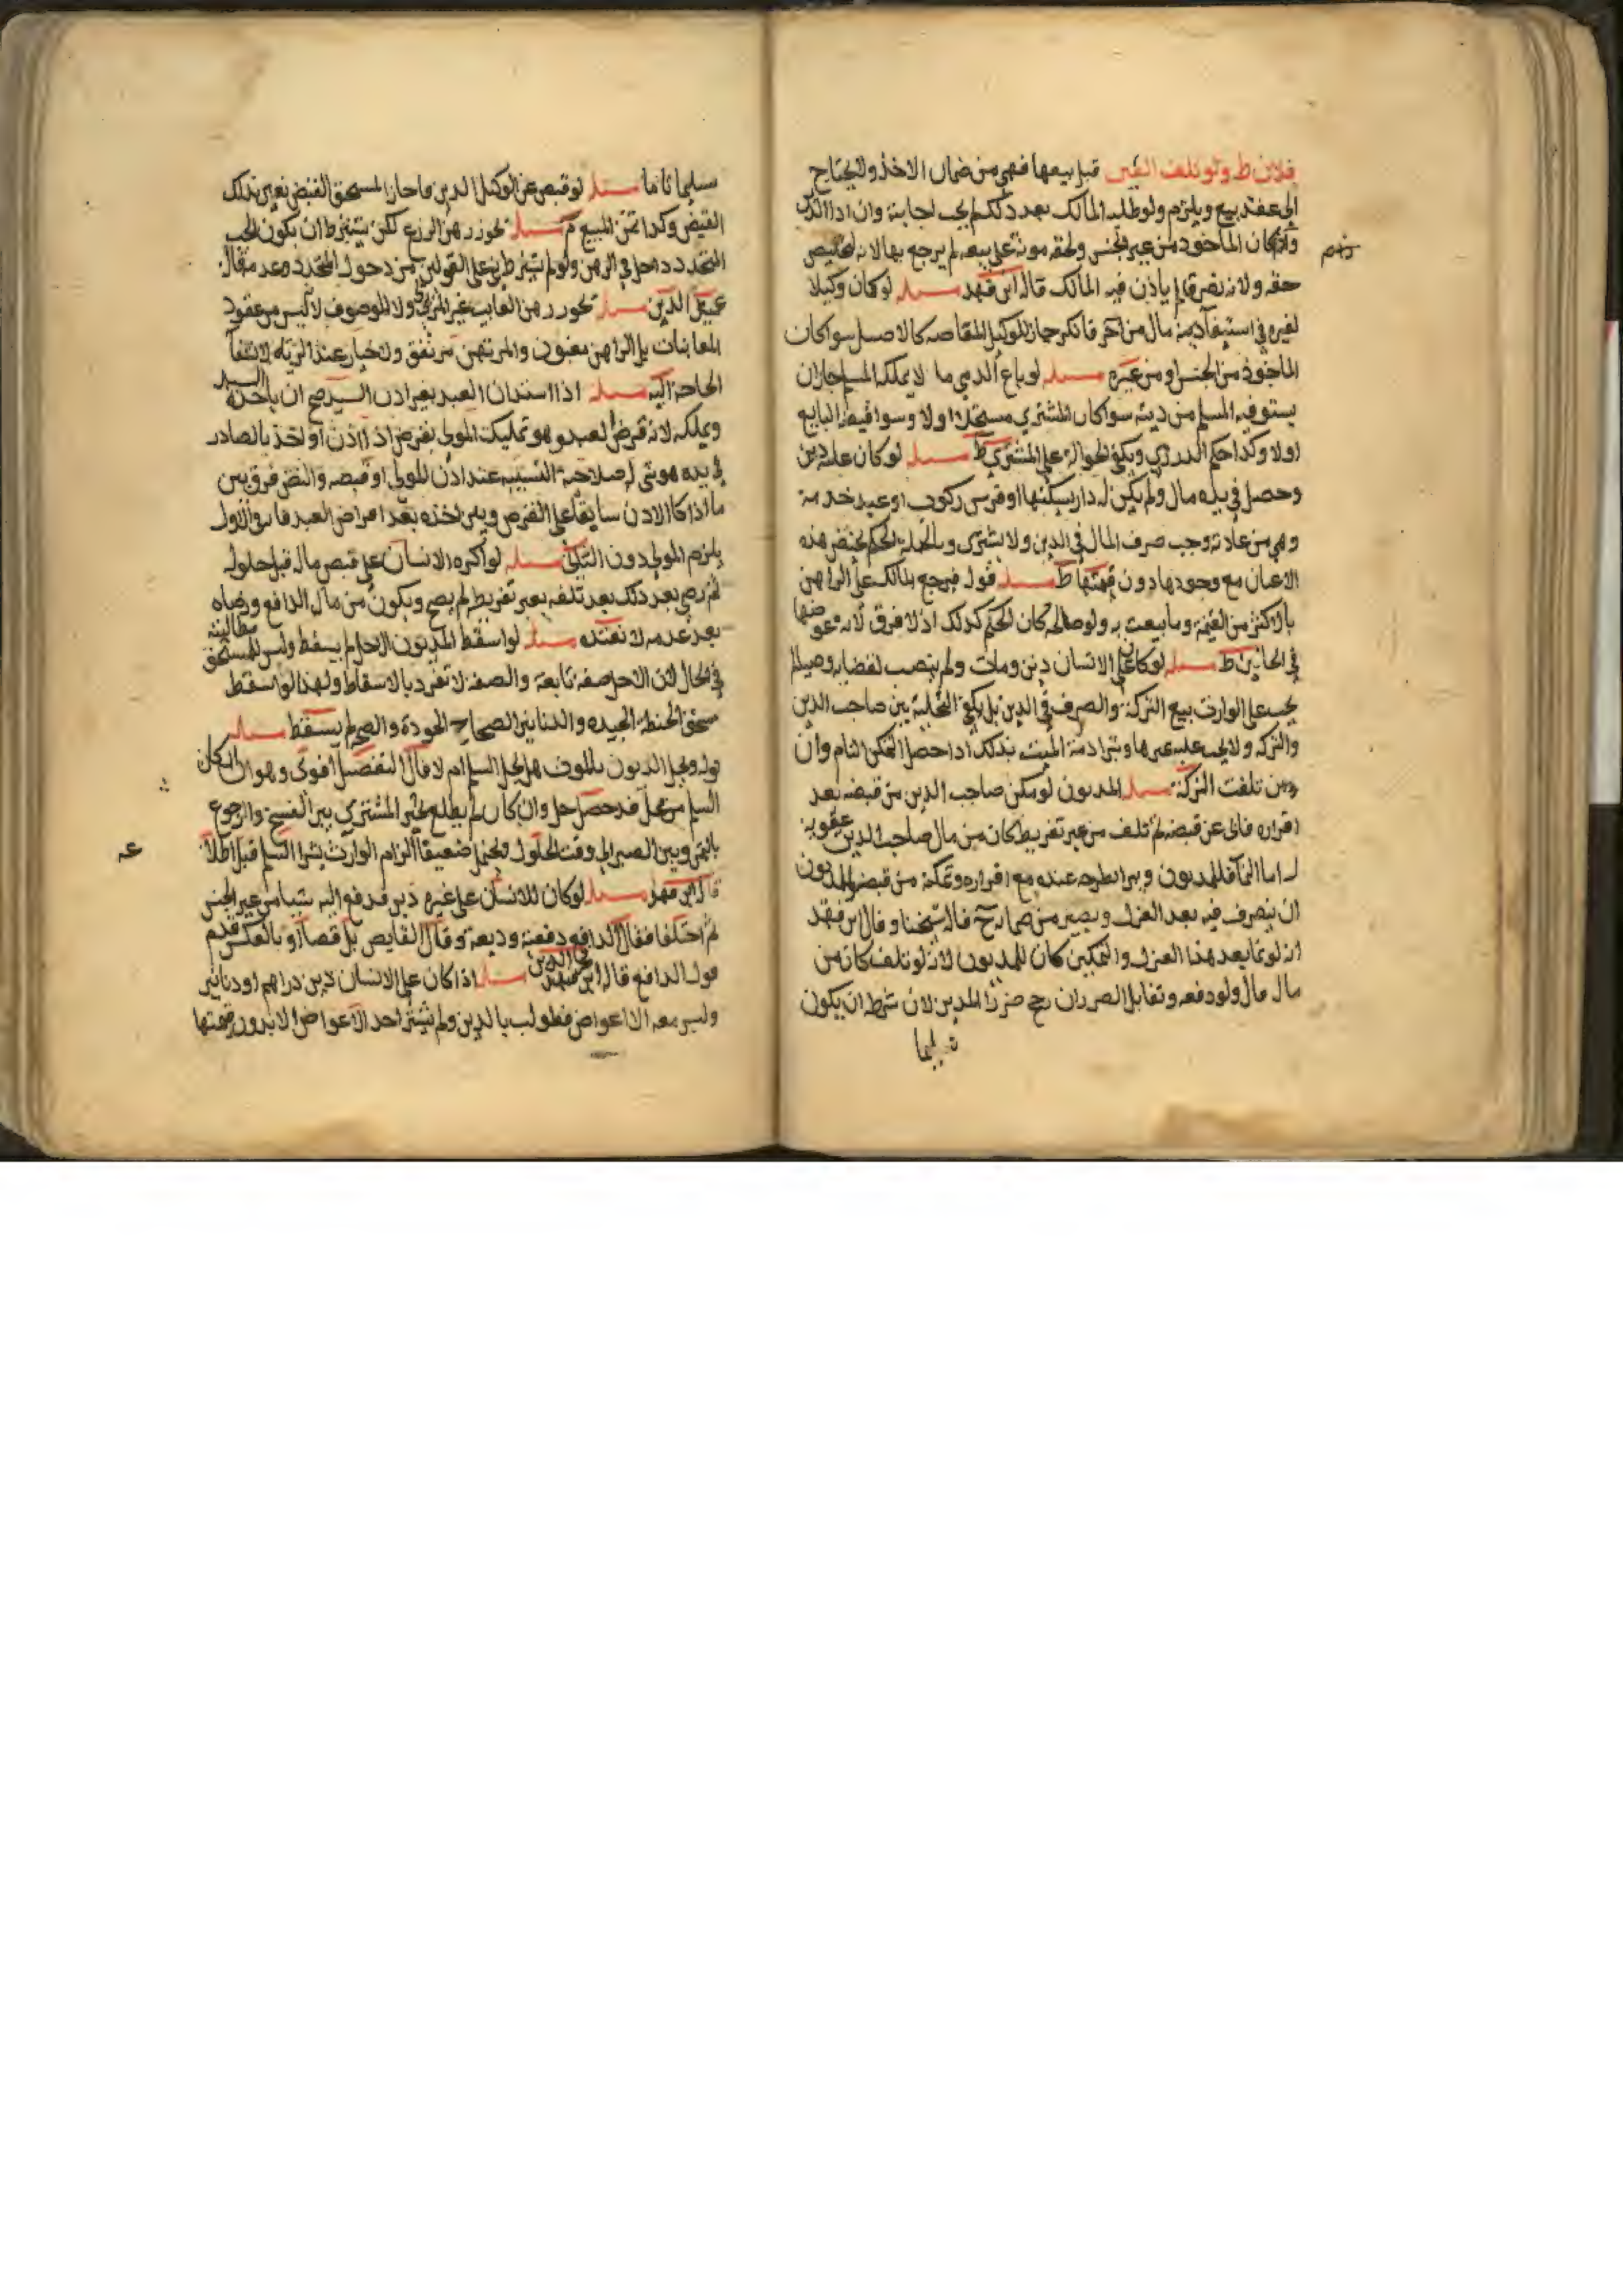 فلان ط ولو تلف العين قبل بيعها فهي من ضمان الاخذ ولا يحتاج
الى عقد بيع ويلزم ولو طلبه المالك بعد ذلك لم يجب اجابته وان ادا الدين
وان كان الماخوذ من غير الجنس ولحقه مونة على بيعه لم يرجع بها لانه لتخليص
حقه ولانه تصرف لم ياذن فيه المالك قاله ابن فهد مسله لو كان وكيلا
لغيره في استيفا دينه مال من اخر فانكر جاز للوكيل المقاصه كالاصل سوا كان
الماخوذ من الجنس او من غيره مسله لو باع الذمي ما لا يملكه المسلم جاز ان
يستوفيه المسلم من دينه سوا كان المشتري مستحلا اولا وسوا قبضه البايع
اولا وكذا حكم الدرزي ويكفي الحواله على المشتري ط مسله لو كان عليه دين
وحصل في يده مال ولم يكن له دار يسكنها او فرس ركوب او عبد خدمة
وهي من عادته وجب صرف المال في الدين ولا يشتري وبالجمله الحكم يختص هذه
الاعيان مع وجودها دون قيمتها ط مسله قوله فيرجع المالك على الراهن
بالاكثر من القيمة وما بيعت به ولو صالحه كان الحكم كذلك اذ لا فرق لانه عوضها
في الحالين ط مسله لو كان على الانسان دين ومات ولم ينصب لقضايه وصيا لم
يجب على الوارث بيع التركة والصرف في الدين بل يكفي التخلية بين صاحب الدين
والتركه ولا يجب عليه غيرها وتبرا ذمة الميت بذلك اذا حصل التمكن التام وان
تلفت التركة مسله المديون لو مكن صاحب الدين من قبضه بعد
اقراره فابى عن قبضه ثم تلف من غير تفريط كان من مال صاحب الدين عقوبة
له اما النما فللمديون ويبرا بطرحه عنده مع اقراره وتمكنه من قبضه وللمديون
ان يتصرف فيه بعد العزل ويصير من ضمانه ح قاله شيخنا وقال ابن فهد
انه لو نما بعد هذا العزل والتمكين كان للمديون لانه لو تلف كان من
مال ولو دفعه وتقابل الضرران رجح ضرر المدين لان شرط ان يكون
سليما تاما مسله لو قبض عن الوكيل الدين ما جاز للمستحق القبض بغير ذلك
القبض وكذا ثمن المبيع م مسله يجوز رهن الزرع لكن يشترط ان يكون الحب
المتجدد داخل في الرهن ولو لم يشترط بني على القولين من دخول المتجدد وعدمه قاله
عميد الدين مسله يجوز رهن الغايب غير المرئي ولا الموصوف لانه ليس من عقود
المغابنات بل الراهن مغبون والمرتهن مرتفق ولا خيار عند الرؤيه لانتفا
الحاجة اليه مسله اذا استدان العبد بغير اذن السيد صح ان ياخذه السيد
ويملكه لانه قرض لعبده وهو تمليك المولى بفرض اذا اذن او اخذ بالصادر
في يده هو شي له صلاحية السببيه عند اذن المولى او قبضه والنص فرق بين
ما اذا كان الاذن سابقا على القرض وبين اخذه بعد اقراض العبد فان الاول
يلزم المولى دون الثاني مسله لو اكره الانسان على قبض ماله قبل حلوله
ثم رضي بعد ذلك بعد تلفه بغير تفريط لم يصح ويكون من مال الدافع ورضاه
بعد عدمه لا نعتده مسله لو اسقط المديون الاجل لم يسقط وليس للمستحق مطالبته
في الحال لان الاجل صفة تابعة والصفه لا تفرد بالاسقاط ولهذا لو اسقط
مستحق الحنطة الجيده والدنانير الصحاح الجودة والصحه لم يسقط مسله
قوله ويحل الديون بالموت هل يحل السلم ام لا قال التفصيل اقوى وهو ان كان
السلم من عمل قد حصل حل وان كان لم يطلع تخير المشتري بين الفسخ والرجوع
بالثمن وبين الصبر الى وقت الحلول ويحتمل ضعيفا الزام الوارث بشرا السلم قبل اطلا
قاله ابن فهد مسله لو كان للانسان على غيره دين فدفع اليه شيا من غير الجنس
ثم اختلفا فقال الدافع دفعته وديعة وقال القابض بل قصاصا او بالعكس قدم
قول الدافع قاله ابن فهد مسله اذا كان على الانسان دين دراهم او دنانير
وليس معه الا اعواض فطولب بالدين ولم يشتر احد الاعواض الا بدون قيمتها